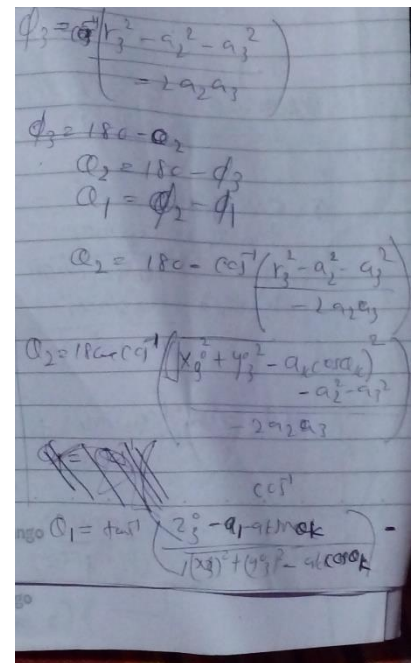 ϕ₃ = cos⁻¹ (r₃² - a₂² - a₃² / -2a₂a₃)
ϕ₃ = 180 - Q₂
Q₂ = 180 - ϕ₃
Q₁ = ϕ₂ - ϕ₁
Q₂ = 180 - cos⁻¹ (r₃² - a₂² - a₃² / -2a₂a₃)
Q₂ = 180 - cos⁻¹ ((√x₃⁰² + y₃⁰² - aₖcosαₖ)² - a₂² - a₃² / -2a₂a₃)
cos⁻¹
Q₁ = tan⁻¹ (z₃⁰ - a₁ - / √(x₃⁰)² + (y₃⁰)² - ) -
ngo
go